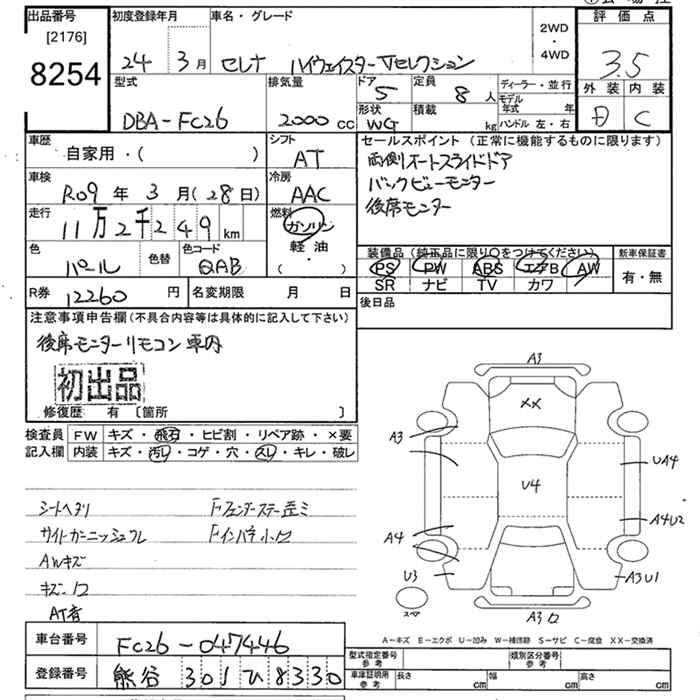 出品番号 初度登録年月 車名・グレード 評価点
[2176]
8254
24 3月 セレナ ハイウェイスター Vセレクション 2WD・4WD 3.5
型式 排気量 ドア 5 定員 8人 ディーラー・並行 外装 内装
DBA-FC26 2000 CC 形状 WG 積載 kg モデル年式 年 C
ハンドル 左・右
車歴 自家用・( ) シフト AT セールスポイント (正常に機能するものに限ります)
車検 R09年 3月(28日) 冷房 AAC 両側オートスライドドア
バックビューモニター
後席モニター
走行 11万2千249km 燃料 ガソリン 軽油 ・ ( )
色 パール 色替 色コード QAB 装備品(純正品に限り○をつけてください) 新車保証書
PS PW ABS エアB AW 有・無
SR ナビ TV カワ
R券 12260円 名変期限 月 日 後日品
注意事項申告欄(不具合内容等は具体的に記入して下さい)
後席モニターリモコン車内
初出品
修復歴 有 〔箇所 〕
検査員 FW キズ・飛石・ヒビ割・リペア跡・×要
記入欄 内装 キズ・汚し・コゲ・穴・スレ・キレ・破レ
シートヘタリ
サイドガーニッシュフレ
AWキズ
キズ・凹
AT有
Fインパネ小凹
A3
XX
A3
UA4
U4
A4
A4U2
U3
A3U1
スペア
A3凹
A-キズ E-エクボ U-凹み W-補修跡 S-サビ C-腐食 XX-交換済
車台番号 FC26-047446
型式指定番号 参考 類別区分番号 参考
登録番号 熊谷 301 ひ 8330
車庫証明用 参考 長さ cm 幅 cm 高さ cm